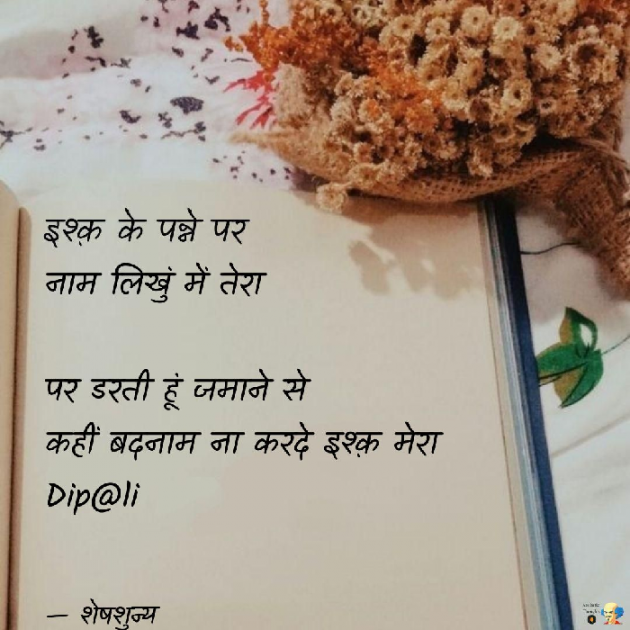 इश्क़ के पन्ने पर
नाम लिखुं में तेरा
पर डरती हूं जमाने से
कहीं बदनाम ना करदे इश्क़ मेरा
Dip@li
— शेषशुन्य